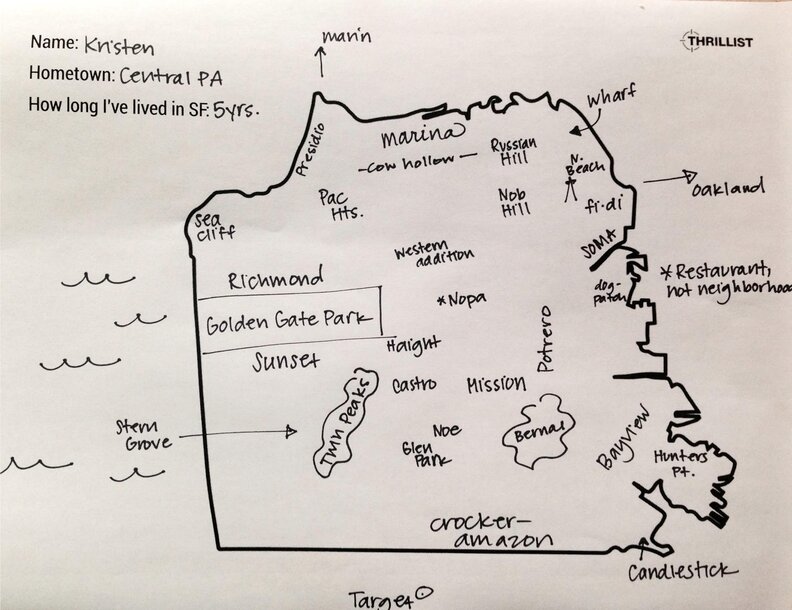 Name: Kristen
THRILLIST
Hometown: Central PA
How long I've lived in SF: 5yrs.
marin
Wharf
Presidio
marina
-cow hollow-
Russian
Hill
N.
Beach
Oakland
Pac
Hts.
Nob
Hill
fi-di
sea
cliff
SOMA
Western
addition
Richmond
dog-
patch
* Restaurant,
not neighborhood
*Nopa
Golden Gate Park
Potrero
Haight
Sunset
Castro
Mission
Twin Peaks
Stern
Grove
Noe
Glen
Park
Bernal
Bayview
Hunters
Pt.
crocker-
amazon
Candlestick
Target